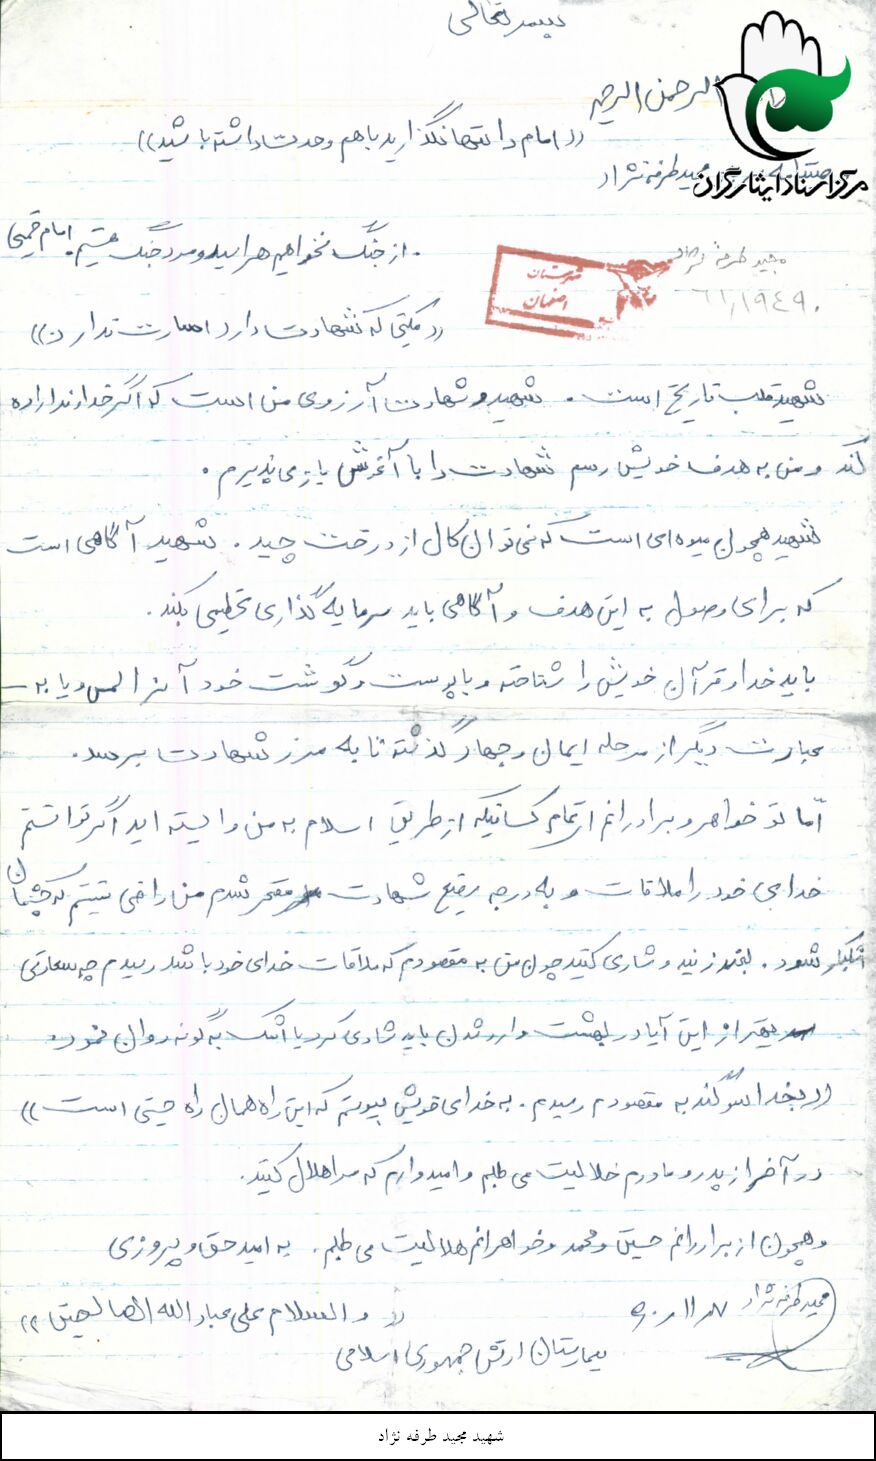 بسمه تعالی
الرحمن الرحیم
((امام را تنها نگذارید با هم وحدت داشته باشید))
مجید طرفه نژاد
مرکز اسناد ایثارگران
از جنگ نخواهیم هراسید و مرد جنگ هستیم. امام خمینی
مجید طرفه نژاد
۶۱/۱۹۴۹۰
شهرستان
اصفهان
((ملتی که شهادت دارد اسارت ندارد))
شهید قلب تاریخ است. شهید و شهادت آرزوی من است که اگر خداوند اراده
کند و من به هدف خویش رسم شهادت را با آغوش باز می پذیرم.
شهید همچون میوه ای است که نمی توان کال از درخت چید. شهید آگاهی است
که برای وصول به این هدف و آگاهی باید سرمایه گذاری عظیمی بکند.
باید خدا و قرآن خویش را شناخته و با پوست و گوشت خود آنرا لمس و یا به
عبارت دیگر از مرحله ایمان و جهاد گذشته تا به مرز شهادت برسد.
امّا تو خواهر و برادرانم از تمام کسانیکه از طریق اسلام به من وابسته اید اگر توانستم
خدای خود را ملاقات و به درجه رفیع شهادت مفتخر شدم من راضی نیستم که چشمان
اشکبار شود. لبخند زنید و شادی کنید چون من به مقصودم که ملاقات خدای خود باشد رسیدم چه سعادتی
بهتر از این آیا در بهشت وارد شدن باید شادی کرد یا اشک به گونه روان نمود.
((بخدا سوگند به مقصودم رسیدم. به خدای خویش پیوستم که این راه همان راه حسینی است))
در آخر از پدر و مادرم حلالیت می طلبم و امیدوارم که مرا حلال کنید.
و همچون از برادرانم حسین و محمد و خواهرانم حلالیت می طلبم. به امید حق و پیروزی
((والسلام علی عباد الله الصالحین))
مجید طرفه نژاد
بیمارستان ارتش جمهوری اسلامی
شهید مجید طرفه نژاد